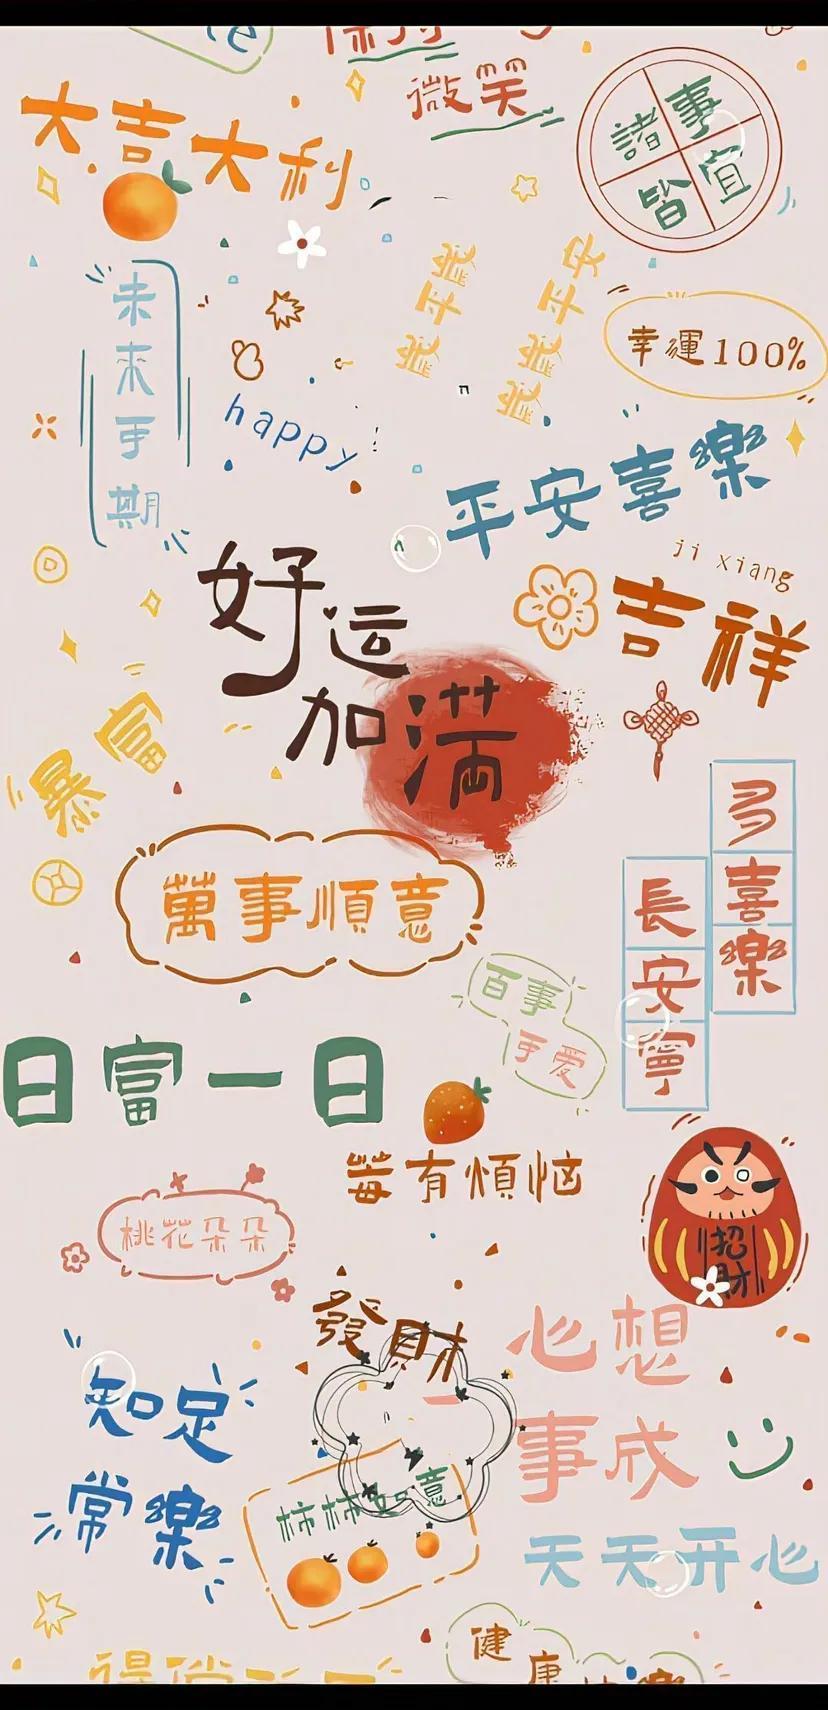 微笑
大吉大利
諸事
皆宜
未来可期
歲歲平安
幸運100%
happy
平安喜樂
ji xiang
吉祥
好运
加满
暴富
多喜樂
長安寧
萬事順意
百事
可爱
日富一日
莓有煩惱
招財
桃花朵朵
發財
心想
事成
知足
常樂
柿柿如意
天天开心
健
康